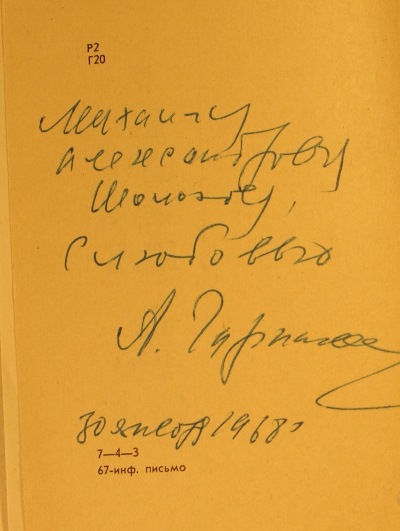 Р2
Г20
Михаилу
Александровичу
Шолохову,
с любовью
А.
30 янв 1968 г
7—4—3
67-инф. письмо